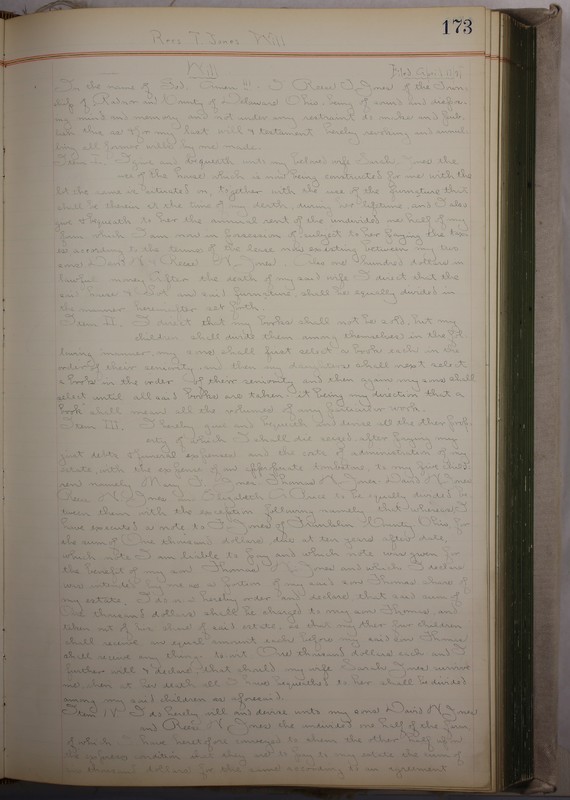 173
Rees T Jones Will
Will
In the name of God, Amen !! I Rees T. Jones of the Town-
ship of Radnor and County of Delaware Ohio, being of sound and dispos-
ing mind and memory and not under any restraint do make and pub-
lish this as & for my last will & testament hereby revoking and annul-
ling all former wills by me made.
Item I. I give and bequeath unto my beloved wife Sarah Jones the
use of the house which is now being constructed for me with the
lot the same is situated on, together with the use of the furniture that
shall be therein at the time of my death, during her lifetime, and I also
give & bequeath to her the annual rent of the undivided one half of my
farm which I am now in possession of, subject to her paying the tax-
es according to the terms of the lease now existing between my two
sons David N & Rees N. Jones one hundred dollars in
money. After the death of my said wife I direct that the
said house & lot and said furniture, shall be equally divided in
the manner hereinafter set forth.
Item II. I direct that my books shall not be sold, but my
children shall divide them among themselves in the fol-
lowing manner, my sons shall first select a book each in the
order of their seniority, and then my daughters shall next select
a book in the order of their seniority and then again my sons shall
select until all said books are taken. it being my direction that a
"book" shall mean all the volumes of any particular work.
Item III. I hereby give and bequeath and devise all the other prop-
erty of which I shall die seized, after paying my
just debts & funeral expenses and the costs of administration of my
estate, with the expense of an appropriate tombstone, to my five child-
ren namely Mary J. Jones Thomas N. Jones, David N. Jones
Rees N. Jones and Elizabeth A. to be equally divided be-
tween them with the exception following namely, that whereas I
have executed a note to Jones of Franklin County Ohio for
the sum of One thousand dollars, due at ten years after date,
which note I am liable to pay and which note was given for
the benefit of my son Thomas N. Jones and which I declare
was intended by me as a portion of my said son Thomas share of
my estate. I do now hereby order and declare that said sum of
One thousand dollars shall be charged to my son Thomas, and
taken out of his share of said estate, so that my other four children
shall receive an equal amount each before my said son Thomas
shall receive any thing, to wit One thousand dollars each and I
further will & declare, that should my wife Sarah Jones survive
me, then at her death all I have bequeathed to her shall be divided
among my said children as aforesaid.
Item IV. I do hereby will and devise unto my sons David N. Jones
and Rees N. Jones the undivided one half of the farm
of which I have heretofore conveyed to them the other half upon
the express condition that they are to pay to my estate the sum of
thousand dollars for the same according to an agreement